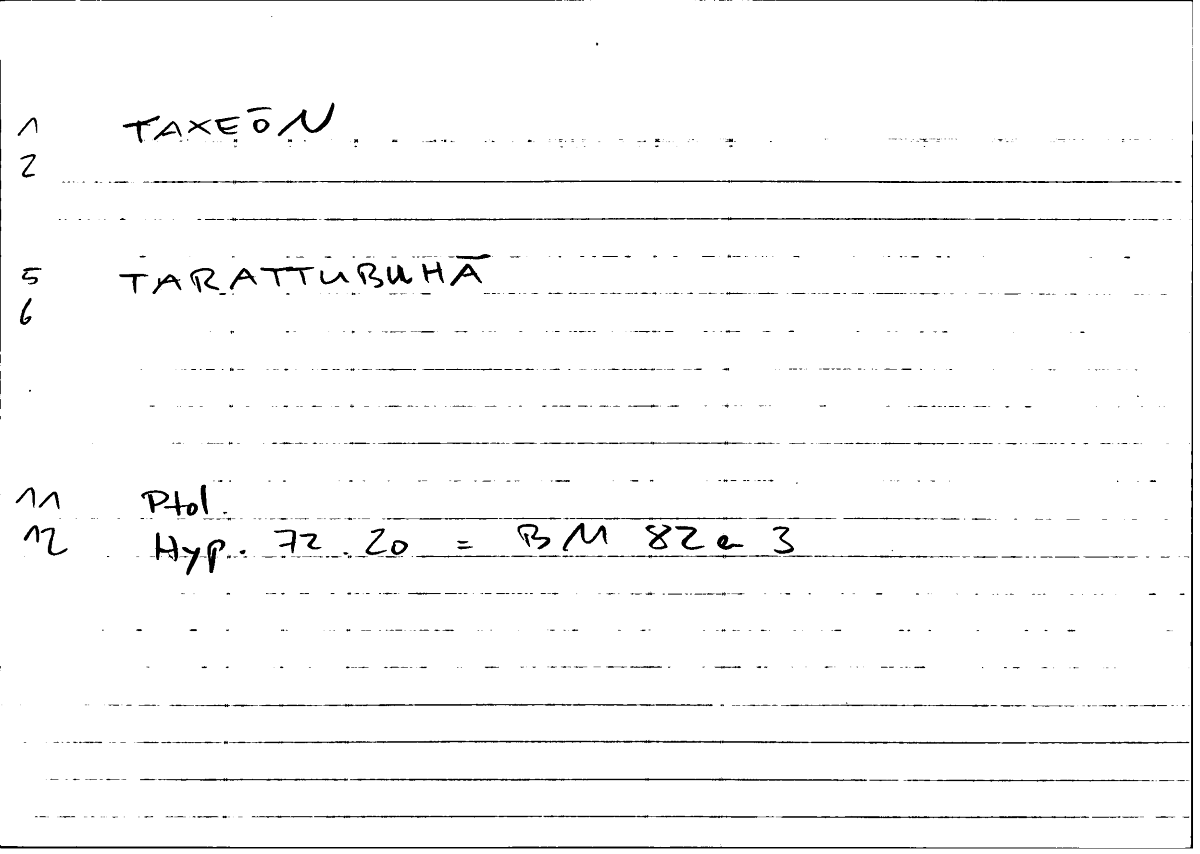 1 TAXEŌN
2
5 TARATTUBUHĀ
6
11 Ptol.
12 Hyp. 72.20 = BM 82a 3